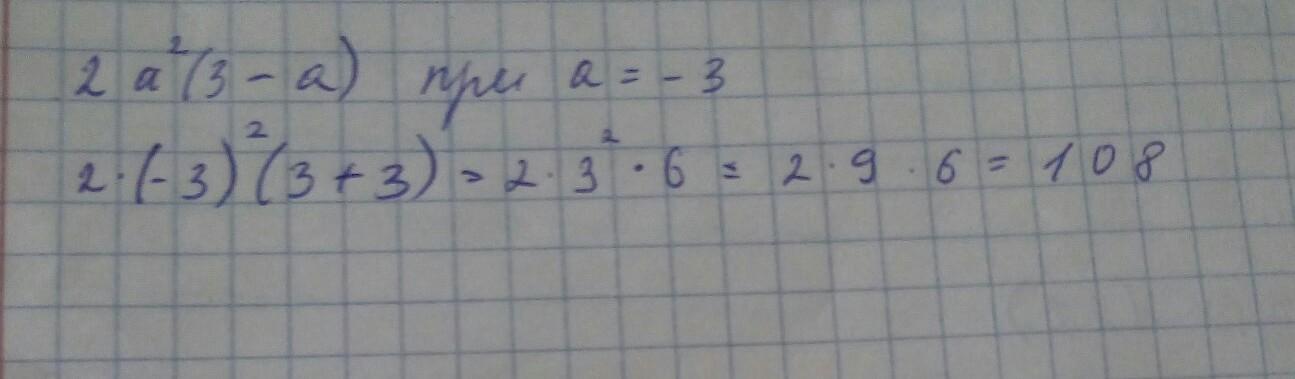 2 a²(3 - a) при a = - 3
2·(-3)²(3 + 3) = 2·3²·6 = 2·9·6 = 108